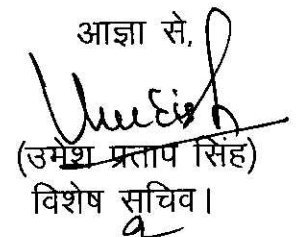 आज्ञा से,
(उमेश प्रताप सिंह)
विशेष सचिव।